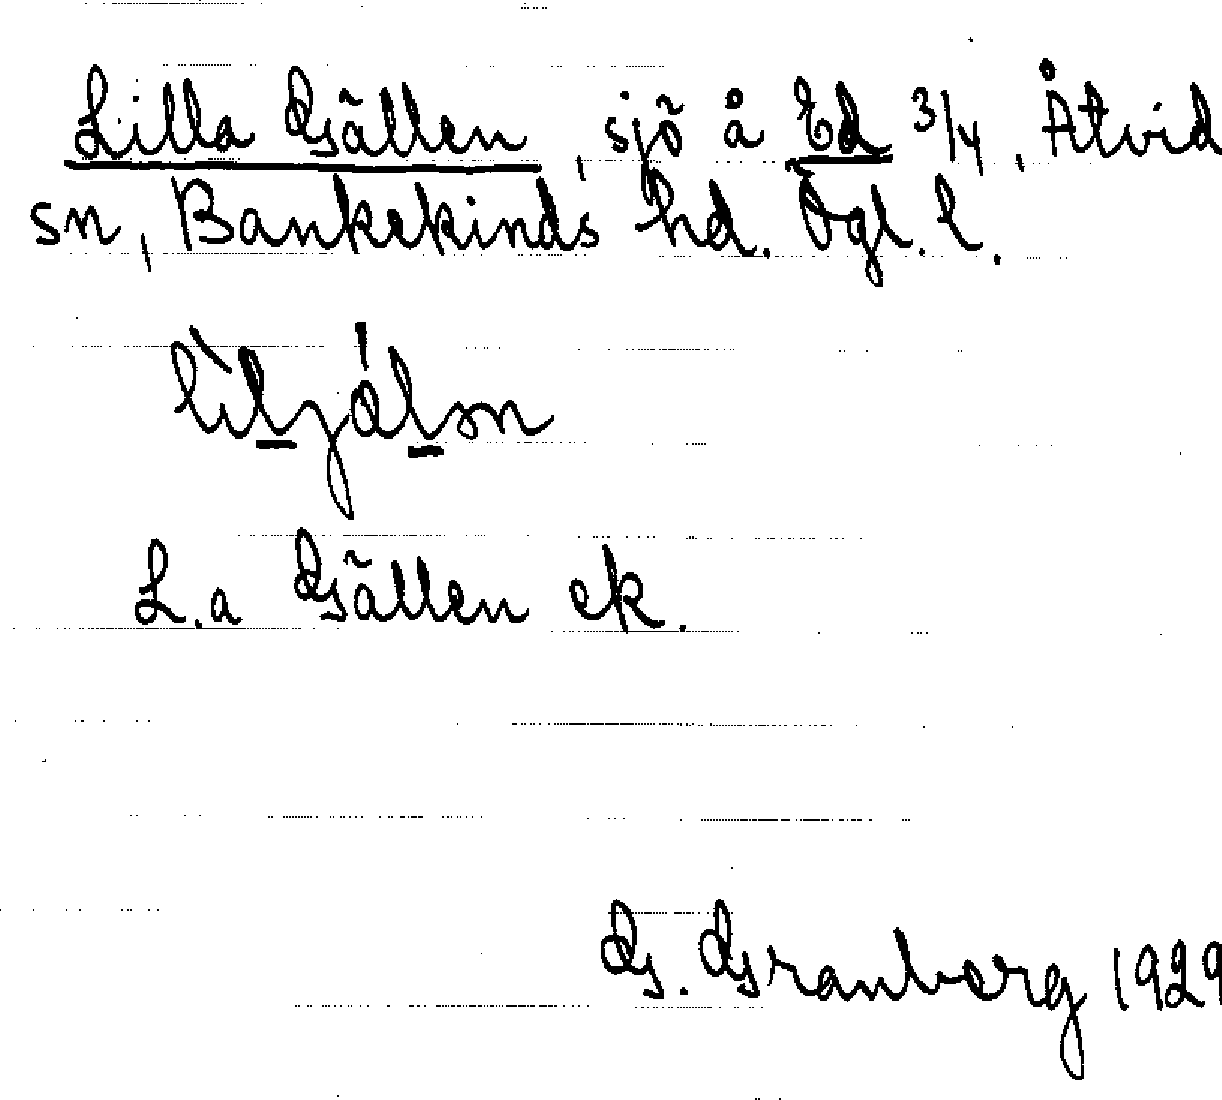 Lilla Gällen, sjö å Ed 3/4, Åtvid
sn, Bankekinds hd. Ögl. l.
L.a Gällen ek.
G. Granberg 1929